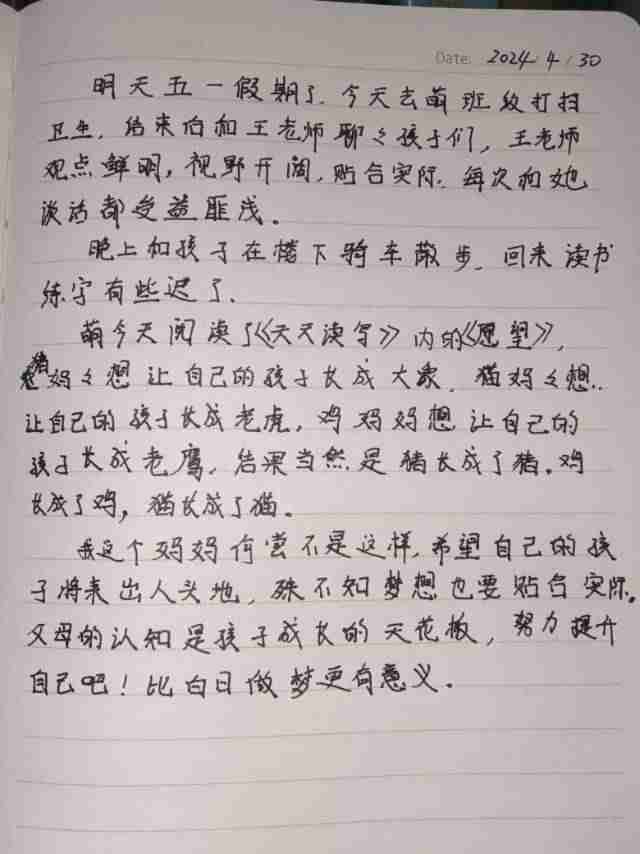 Date: 2024 4 30
明天五一假期了. 今天去萌班级打扫
卫生, 结束后和王老师聊々孩子们, 王老师
观点鲜明, 视野开阔, 贴合实际. 每次和她
谈话都受益匪浅.
晚上和孩子在楼下骑车散步. 回来读书
练字有些迟了.
萌今天阅读了《天天读写》内的《愿望》,
猪妈々想让自己的孩子长成大象. 猫妈々想..
让自己的孩子长成老虎, 鸡妈妈想让自己的
孩子长成老鹰, 结果当然是猪长成了猪. 鸡
长成了鸡, 猫长成了猫.
我这个妈妈何尝不是这样, 希望自己的孩
子将来出人头地, 殊不知梦想也要贴合实际.
父母的认知是孩子成长的天花板, 努力提升
自己吧! 比白日做梦更有意义.